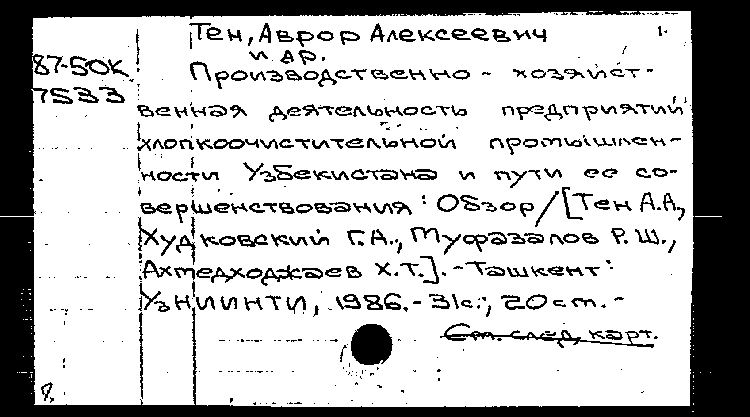 Тен, Аврор Алексеевич 1.
и др.
87-50К
7533
Производственно-хозяйст-
венная деятельность предприятий
хлопкоочистительной промышлен-
ности Узбекистана и пути ее со-
вершенствования: Обзор/[Тен А.А.,
Худковский Г.А., Муфазалов Р.Ш.,
Ахмедходжаев Х.Т.]. - Ташкент:
УзНИИНТИ, 1986. - 31с.; 20 см. -
См. след. карт.